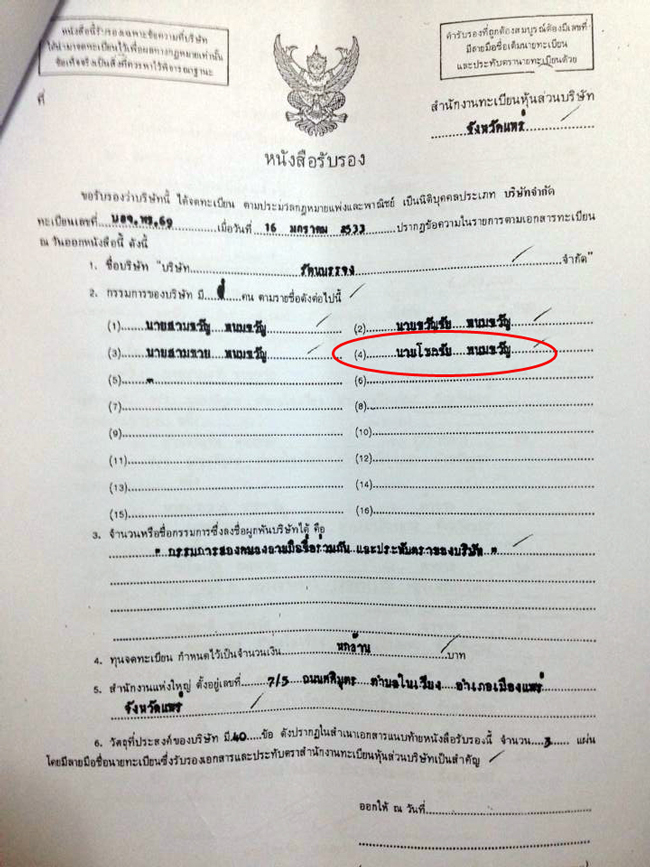 หนังสือรับรองเฉพาะข้อความที่บริษัท
ได้นำมาจดทะเบียนไว้เพื่อผลทางกฎหมายเท่านั้น
ข้อเท็จจริงเป็นสิ่งที่ควรหาไว้พิจารณาฐานะ
คำรับรองที่ถูกต้องสมบูรณ์ต้องมีเลขที่
มีลายมือชื่อเต็มนายทะเบียน
และประทับตรานายทะเบียนด้วย
ที่
สำนักงานทะเบียนหุ้นส่วนบริษัท
จังหวัดแพร่
หนังสือรับรอง
ขอรับรองว่าบริษัทนี้ ได้จดทะเบียน ตามประมวลกฎหมายแพ่งและพาณิชย์ เป็นนิติบุคคลประเภท บริษัทจำกัด
ทะเบียนเลขที่ บอจ.พร.69 เมื่อวันที่ 16 มกราคม 2533 ปรากฏข้อความในรายการตามเอกสารทะเบียน
ณ วันออกหนังสือนี้ ดังนี้
1. ชื่อบริษัท "บริษัท จำกัด"
2. กรรมการของบริษัท มี สี่ คน ตามรายชื่อดังต่อไปนี้
(1) นายสามขวัญ พนมขวัญ (2) นายขวัญชัย พนมขวัญ
(3) นายสามชาย พนมขวัญ (4) นายโชคชัย พนมขวัญ
(5) (6)
(7) (8)
(9) (10)
(11) (12)
(13) (14)
(15) (16)
3. จำนวนหรือชื่อกรรมการซึ่งลงชื่อผูกพันบริษัทได้ คือ
" กรรมการสองคนลงลายมือชื่อร่วมกัน และประทับตราของบริษัท "
4. ทุนจดทะเบียน กำหนดไว้เป็นจำนวนเงิน หกล้าน บาท
5. สำนักงานแห่งใหญ่ ตั้งอยู่เลขที่ 7/5 ถนน ตำบลในเวียง อำเภอเมืองแพร่
จังหวัดแพร่
6. วัตถุที่ประสงค์ของบริษัท มี 40 ข้อ ดังปรากฏในสำเนาเอกสารแนบท้ายหนังสือรับรองนี้ จำนวน 3 แผ่น
โดยมีลายมือชื่อนายทะเบียนซึ่งรับรองเอกสารและประทับตราสำนักงานทะเบียนหุ้นส่วนบริษัทเป็นสำคัญ
ออกให้ ณ วันที่